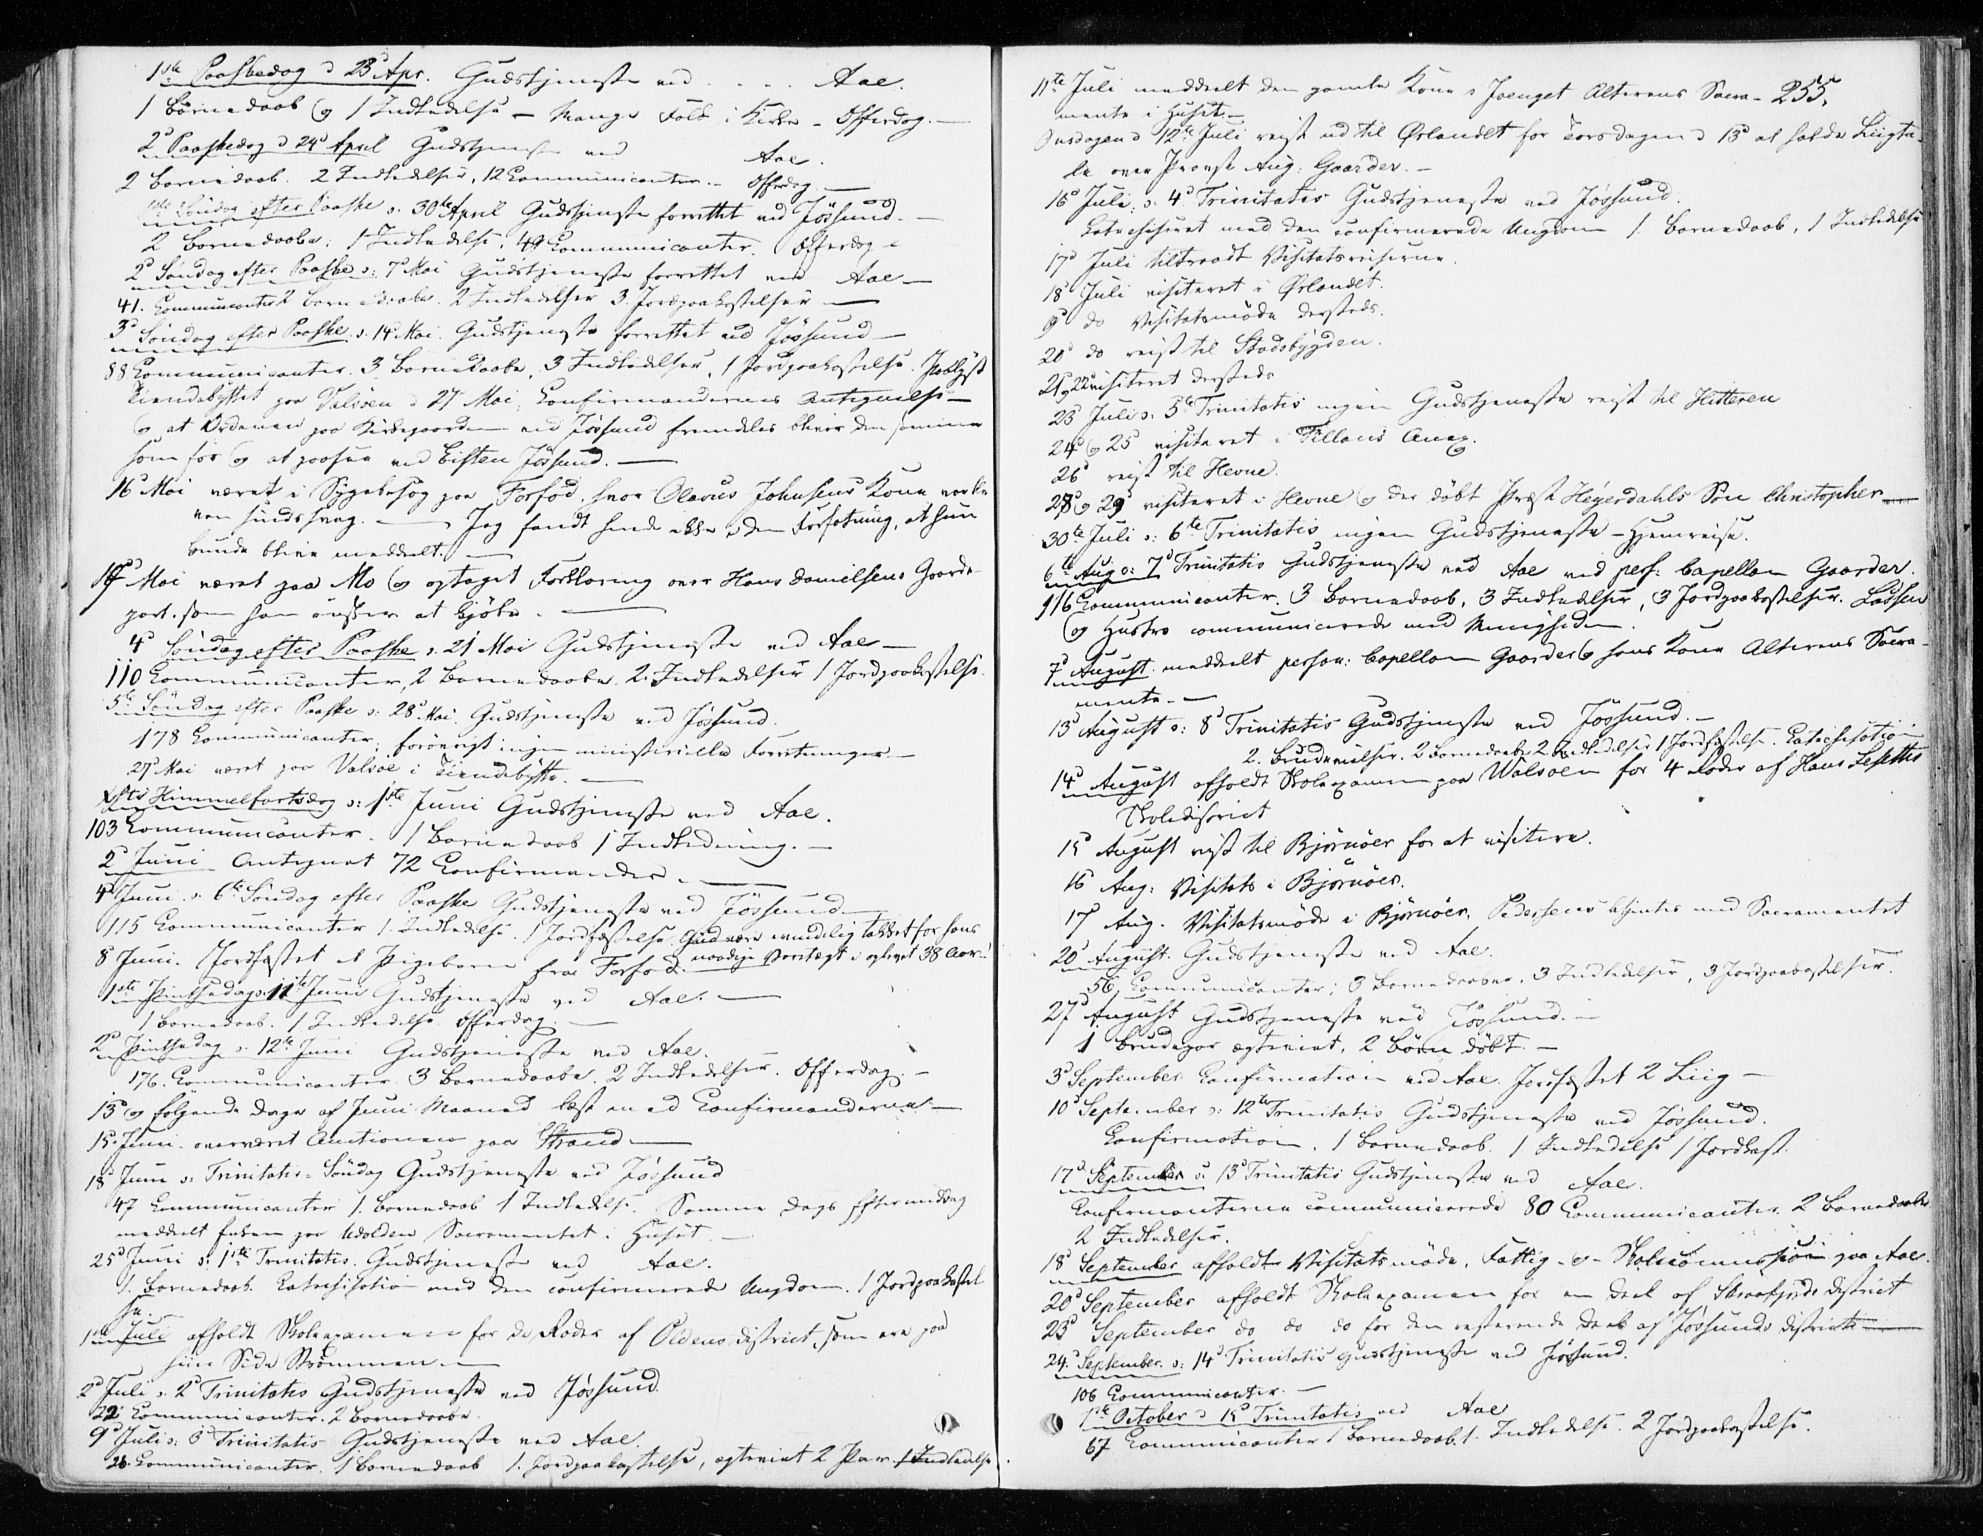 1ste Paaskedag d 23de Apr. Gudstjeneste ved . . . . Aae.
1 Barnedaab og 1 Indledelse – Mange Folk i Kirke – Offerdag. –
2d Paaskedag d 24d April Gudstjeneste ved Aae.
2 Barnedaab. 2 Indledelser, 12 Communicanter. – Offerdag. –
1ste Søndag efter Paaske s. 30te April Gudstjeneste forrettet ved Jøssund. –
2 Barnedaabe, 1 Indledelse, 49 Communicanter. Offerdag –
2d Søndag efter Paaske s: 7d Mai Gudstjeneste forrettet ved Aae –
41. Communicanter 2 Barnedaabe. 2 Indledelser 3. Jordpaakastelser –
3d Søndag efter Paaske s. 14d Mai. Gudstjeneste forrettet ved Jøssund –
88 Communicanter. 3 Barnedaabe, 3 Indledelser, 1 Jordpaakastelse.
Tiendebyttet paa Valsøen d 27 Mai, Confirmandernes Antegnelse –
og at Ordenen paa Kirkegaarden ved Jøssund fremdeles bliver den samme
som før og at paasee ved Eisten Jøssund. –
16 Mai været i Sygebesøg paa Forfod, hvor Olavus Johnsens Kone
Jeg fandt hende ikke i den Forfatning, at hun
kunde blive meddelt. –
19d Mai været paa Mo og optaget Forklaring over Hans Danielsens Gaarde-
part, som han ønsker at kjøbe. –
4d Søndag efter Paaske s. 21 Mai Gudstjeneste ved Aae –
110 Communicanter, 2 Barnedaabe 2. Indledelser 1 Jordpaakastelse.
5te Søndag efter Paaske s: 28d Mai. Gudstjeneste ved Jøssund.
178 Communicanter; forøvrigt ingen ministerielle Forretninger –
27d Mai været paa Valsøe i Tiendebytte. –
Chti Himmelfartsdag s: 1ste Juni Gudstjeneste ved Aae.
103 Communicanter. 1 Barnedaab 1 Indledning. –
2d Juni Antegnet 72 Confirmander. –
4d Juni s. 6te Søndag efter Paaske Gudstjeneste ved Jøssund
115 Communicanter 1. Indledelse. 1 Jordfæstelse. Gud være inderlig takket for hans
8 Juni. Jordfæstet et Pigebarn fra Forfod. naadige Varetægt i oplevet 38 Aar!
1ste Pintsedag s: 11te Juni Gudstjeneste ved Aae. –
1 Barnedaab. 1 Indledelse Offerdag. –
2d Pintsedag s. 12te Juni Gudstjeneste ved Aae.
176. Communicanter 3 Barnedaabe. 2 Indledelser. Offerdag. –
13d og følgende Dage af Juni Maaned læst med Confirmanderne –
15 Juni overværet Auctionen paa Strand –
18d Juni s: Trinitatis-Søndag Gudstjeneste ved Jøssund
47 Communicanter 1. Barnedaab 1 Indledelse. Samme Dags Eftermiddag
meddelt Enken paa Udolden Sacramentet i Huset. –
25d Juni s: 1ste Trinitatis. Gudstjeneste ved Aae.
1. Barnedaab. Catechisation med den confirmerede Ungdom. 1 Jordpaakastel
se. –
1ste Juli afholdt Skoleexamen for de Roder af Oldens District, som ere paa
hiin Side Strømmen. –
2d Juli s. 2d Trinitatis Gudstjeneste ved Jøssund.
22 Communicanter. 2 Barnedaabe.
9d Juli s: 3d Trinitatis Gudstjeneste ved Aae.
26. Communicanter. 1 Barnedaab 1. Jordpaakastelse, ægteviet 2 Par 1 Indledelse.
255.
11te Juli meddeelt den gamle Kone i Joenget Alterens Sacra-
mente i Huset. –
Onsdagen d 12te Juli reist ud til Ørlandet for Torsdagen d 13d at holde Liigta-
le over Provst Aug: Gaarder. –
16d Juli: s. 4d Trinitatis Gudstjeneste ved Jøssund.
Catechiseret med den confirmerede Ungdom 1. Barnedaab, 1 Indledelse
17d Juli tiltraadt Visitatsreiserne.
18d Juli visiteret i Ørlandet.
19d do Visitatsmøde dersteds.
20d do reist til Stadsbygden.
21d og 22d visiteret dersteds
23 Juli s. 5te Trinitatis ingen Gudstjeneste reist til Hitteren
24d og 25 visiteret i Fillans Anex.
26d reist til Hevne.
28d og 29 visiteret i Hevne og der døbt Præst Heyerdahls Søn Christopher
30te Juli s: 6te Trinitatis ingen Gudstjeneste – Hjemreise.
6te Aug s: 7d Trinitatis Gudstjeneste ved Aae ved pers: Capellan Gaarder.
116 Communicanter. 3 Barnedaab, 3 Indledelser, 3 Jordpaakastelser.
og Hustro communicerede med Menigheden.
7d August meddeelt person: Capellan Gaarder og hans Kone Alterens Sacra-
mente. –
13d August s: 8d Trinitatis Gudstjeneste ved Jøssund. –
2. Brudevielser. 2 Barnedaabe 2 Indledelser 1 Jordfæstelse. Catechisation
14d August afholdt Skoleexamen paa Walsøen for 4 Roder af Hans
Skoledistrict
15d August reist til Bjørnøer for at visitere.
16 Aug: Visitats i Bjørnøer.
17d Aug. Visitatsmøde i Bjørnøer, Pedersens betjentes med Sacramentet
20d August. Gudstjeneste ved Aae.
56. Communicanter; 3 Barnedaaber, 3 Indledelser, 3 Jordpaakastelser.
27d August Gudstjeneste ved Jøssund. –
1 Brudepar ægteviet, 2 Børn døbt. –
3d September Confirmation ved Aae. Jordfæstet 2 Liig –
10d September s: 12te Trinitatis Gudstjeneste ved Jøssund.
Confirmation. 1 Barnedaab. 1 Indledelse 1 Jordkast.
17d September s: 13d Trinitatis Gudstjeneste ved Aae.
Confirmanterne communicerede 80 Communicanter 2 Barnedaabe
2 Indledelser.
18d September afholdt Visitatsmøde, Fattig- og Skolecommission paa Aae.
20d September afholdt Skoleexamen for en Deel af Skraafjords District
23d September do do do for den resterende Deel af Jøssunds District
24d September s: 14d Trinitatis Gudstjeneste ved Jøssund.
106 Communicanter. –
1ste October s 15d Trinitatis ved Aae
67 Communicanter 1 Barnedaab. 1. Indledelse. 2 Jordpaakastelse.